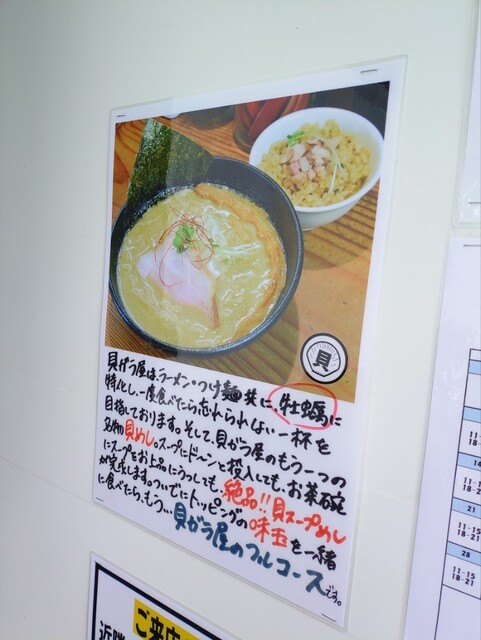 貝
貝ガラ屋は、ラーメン・つけ麺共に、牡蠣に
特化し、一度食べたら忘れられない一杯を
目指しております。そして、貝ガラ屋のもう一つの
名物貝めし。スープにドーンと投入しても、お茶碗
にスープをお上品にうつしても、絶品!!貝スープめし
が完成します。ついでにトッピングの味玉を一緒
に食べたら、もう…貝ガラ屋のフルコースです。
ご来店
近隣
11-15
18-21
14
11-15
18-21
21
11-15
18-21
28
11-15
18-21